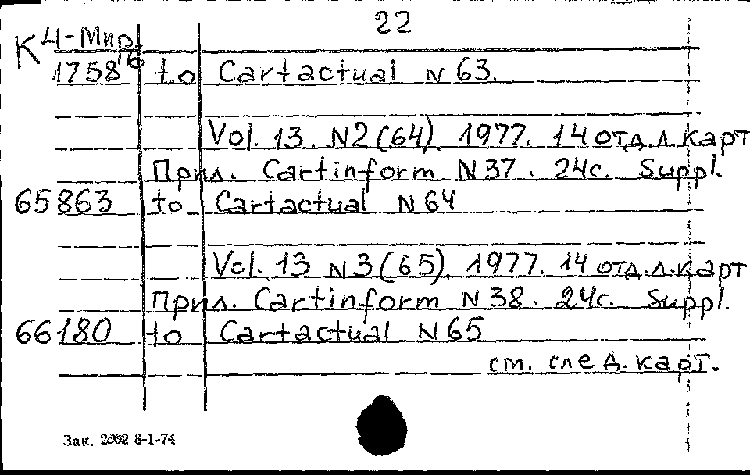 22
К Ц-Мир/6
1758 to Cartactual N 63.
Vol. 13. N2(64). 1977. 14 отд.л.карт
Прил. Cartinform N37. 24с. Suppl.
65863 to Cartactual N64
Vol. 13 N3(65). 1977. 14 отд.л.карт
Прил. Cartinform N 38. 24с. Suppl.
66180 to Cartactual N65
см. след. карт.
Зак. 2062 8-1-74